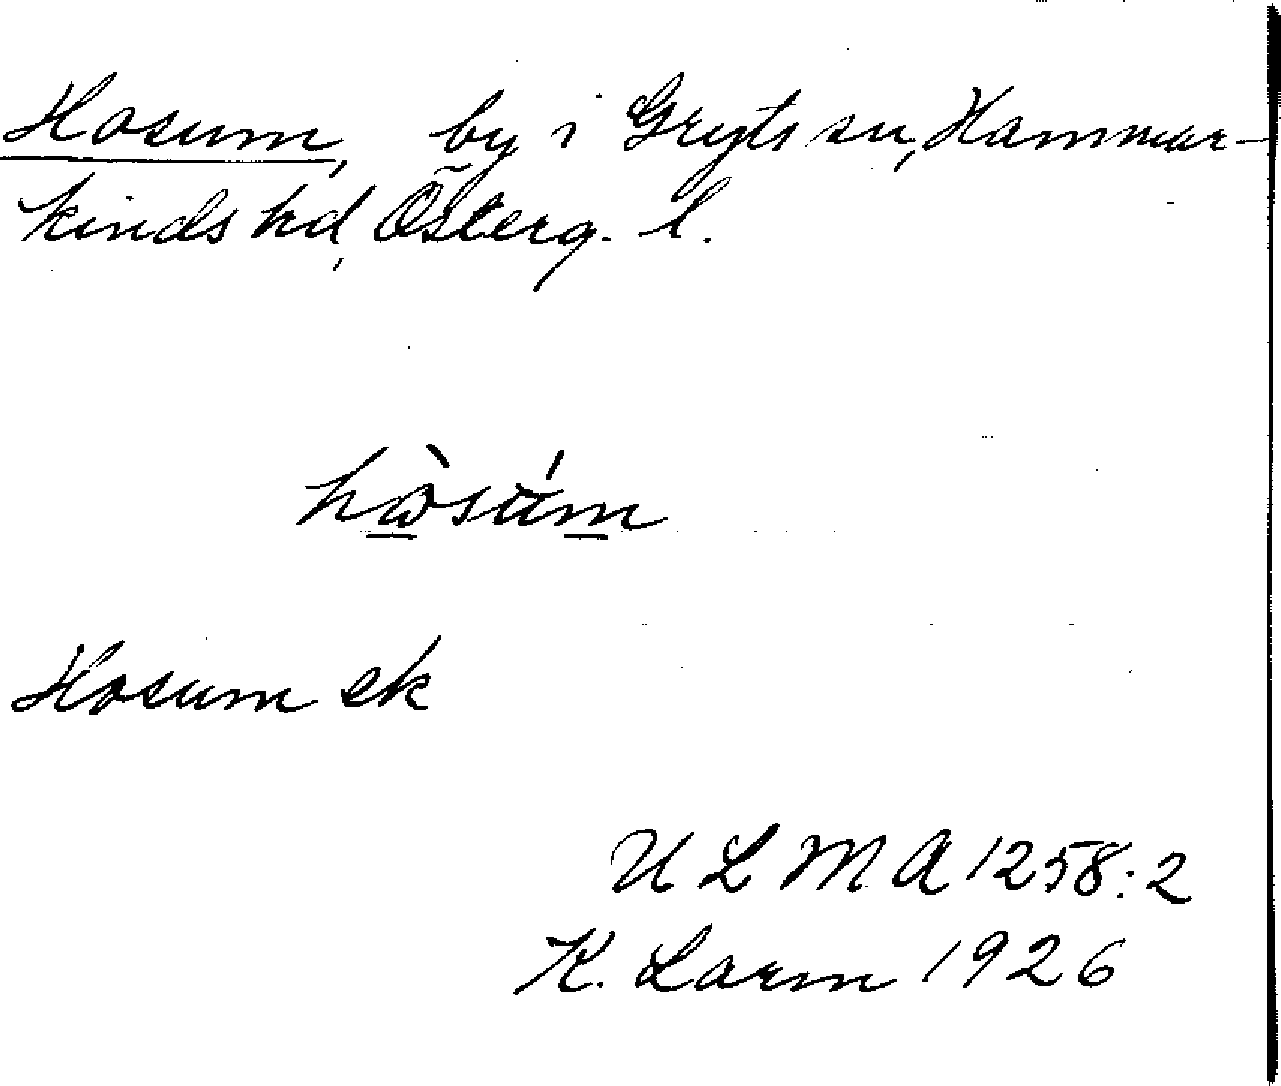 Hosum, by i Gryts sn, Hammar-
kinds hd, Österg. l.
hὼsúm
Hosum ek
ULMA 1258:2
K. Larm 1926